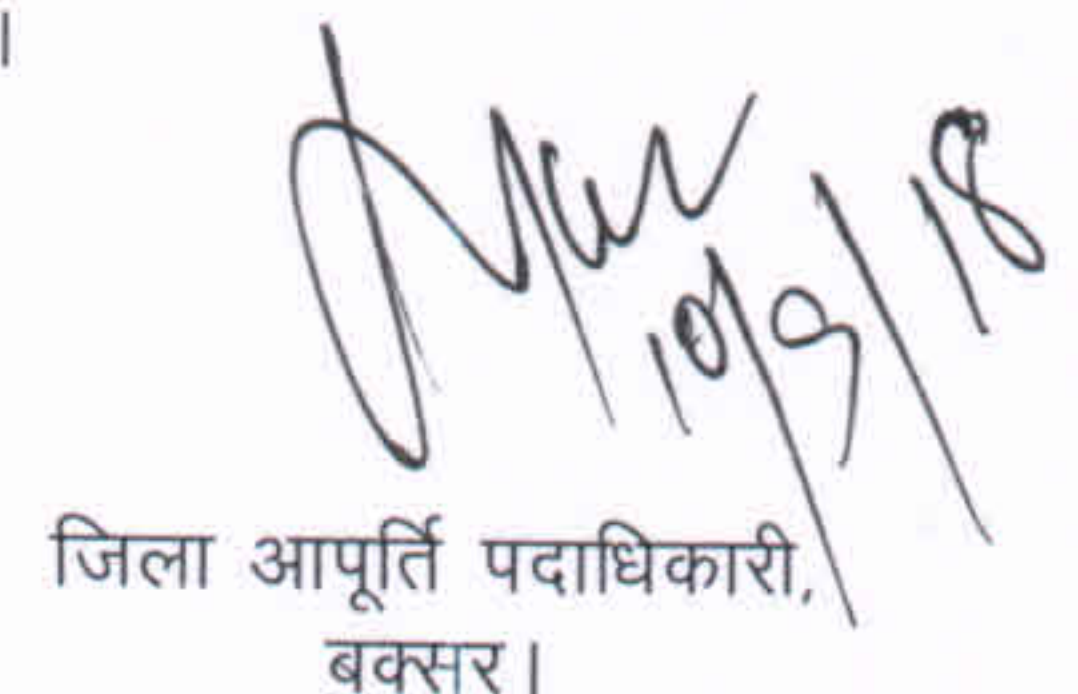 ।
10/9/18
जिला आपूर्ति पदाधिकारी,
बक्सर।